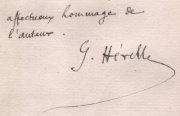 affectueux hommage de
l'auteur.
G. Hérelle